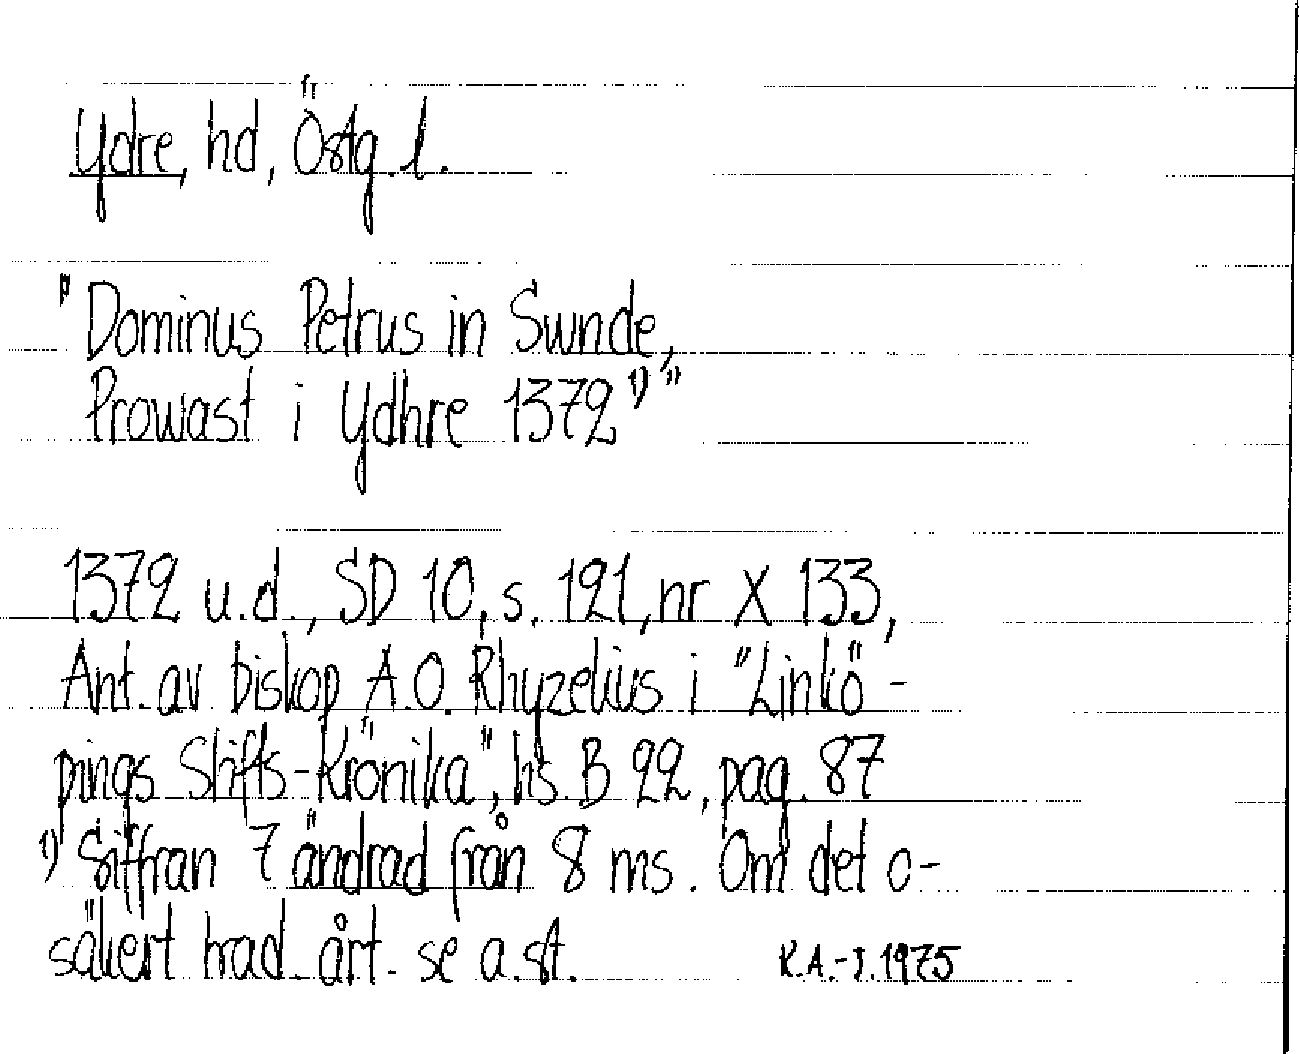 Ydre, hd, Östg. l.
"Dominus Petrus in Swnde,
Prowast i Ydhre 1372 1)"
1372 u.d., SD 10, s. 121, nr X 133,
Ant. av biskop A.O. Rhyzelius i "Linkö-
pings Stifts-Krönika", hs. B 22, pag. 87
1) Siffran 7 ändrad från 8 ms. Om det o-
säkert trad. årt. se a.st.
R.A.-I. 1975